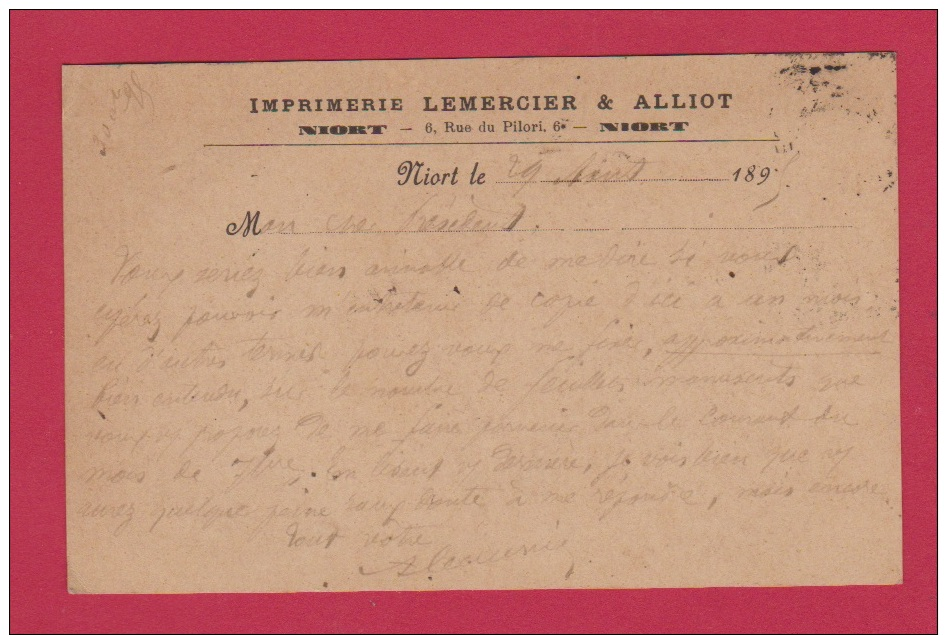 IMPRIMERIE LEMERCIER & ALLIOT
NIORT — 6, Rue du Pilori, 6 — NIORT
Niort le 29 Août 1895
Mon cher Président,
Vous seriez bien aimable de me dire si vous
espérez pouvoir m'entretenir de copie d'ici à un mois
en d'autres termes pouvez vous me fixer, approximativement
bien entendu, sur le nombre de feuilles manuscrits que
vous proposez de me faire parvenir dans le courant du
mois de 7bre. En lisant dernière, je vois bien que
aurez quelque peine sans doute à me répondre, mais encore
Tout votre